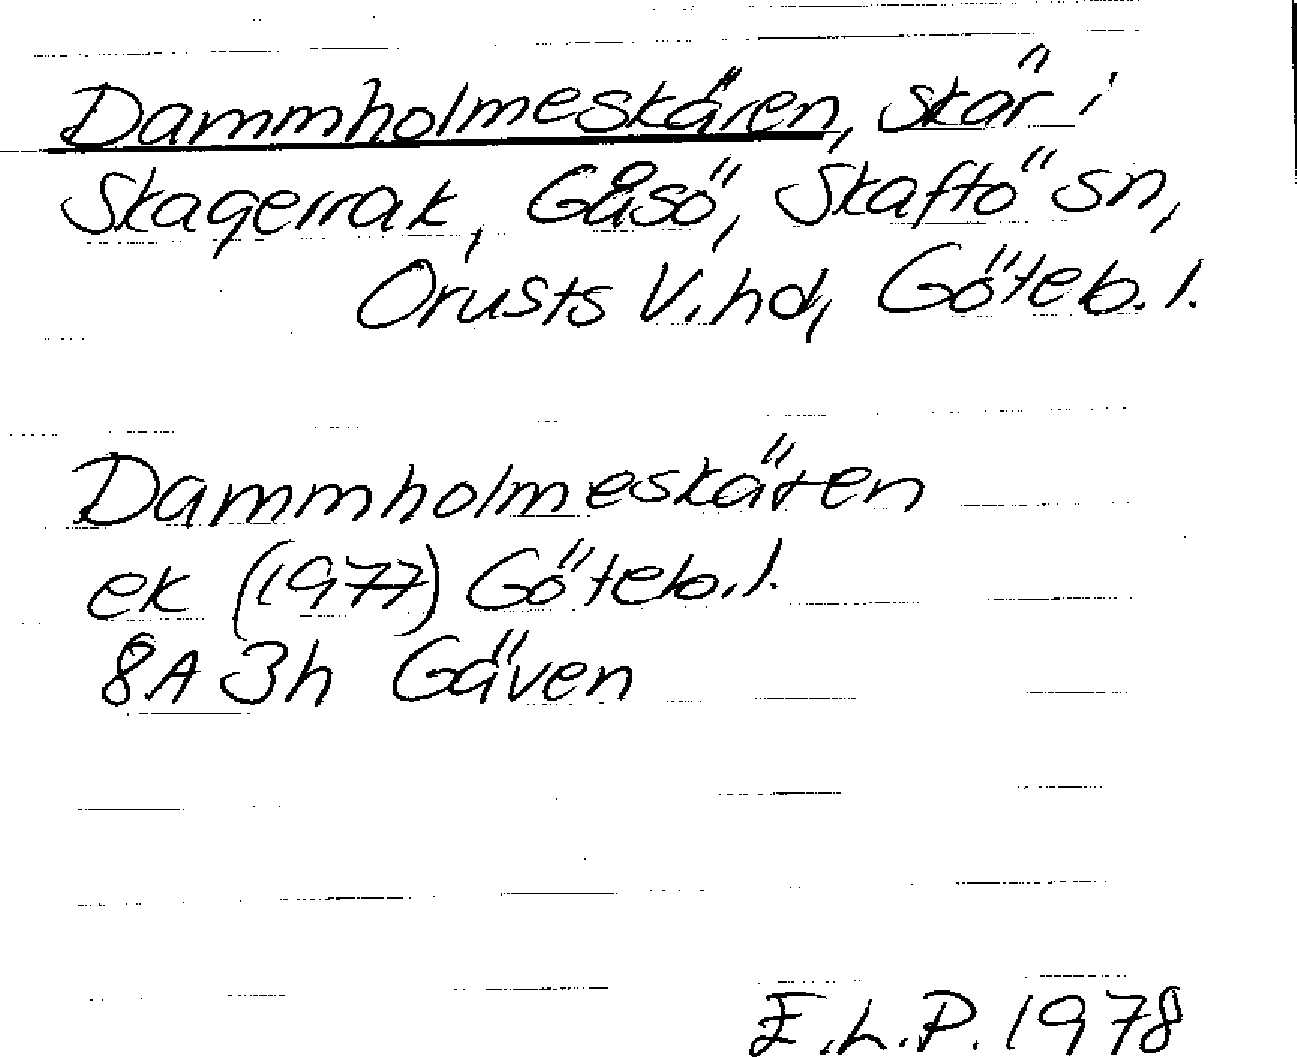 Dammholmeskären, skär i
Skagerrak, Gåsö, Skaftö sn,
Orusts V. hd, Göteb. l.
Dammholmeskären
ek (1977) Göteb. l.
8A 3h Gäven
E.L.P. 1978